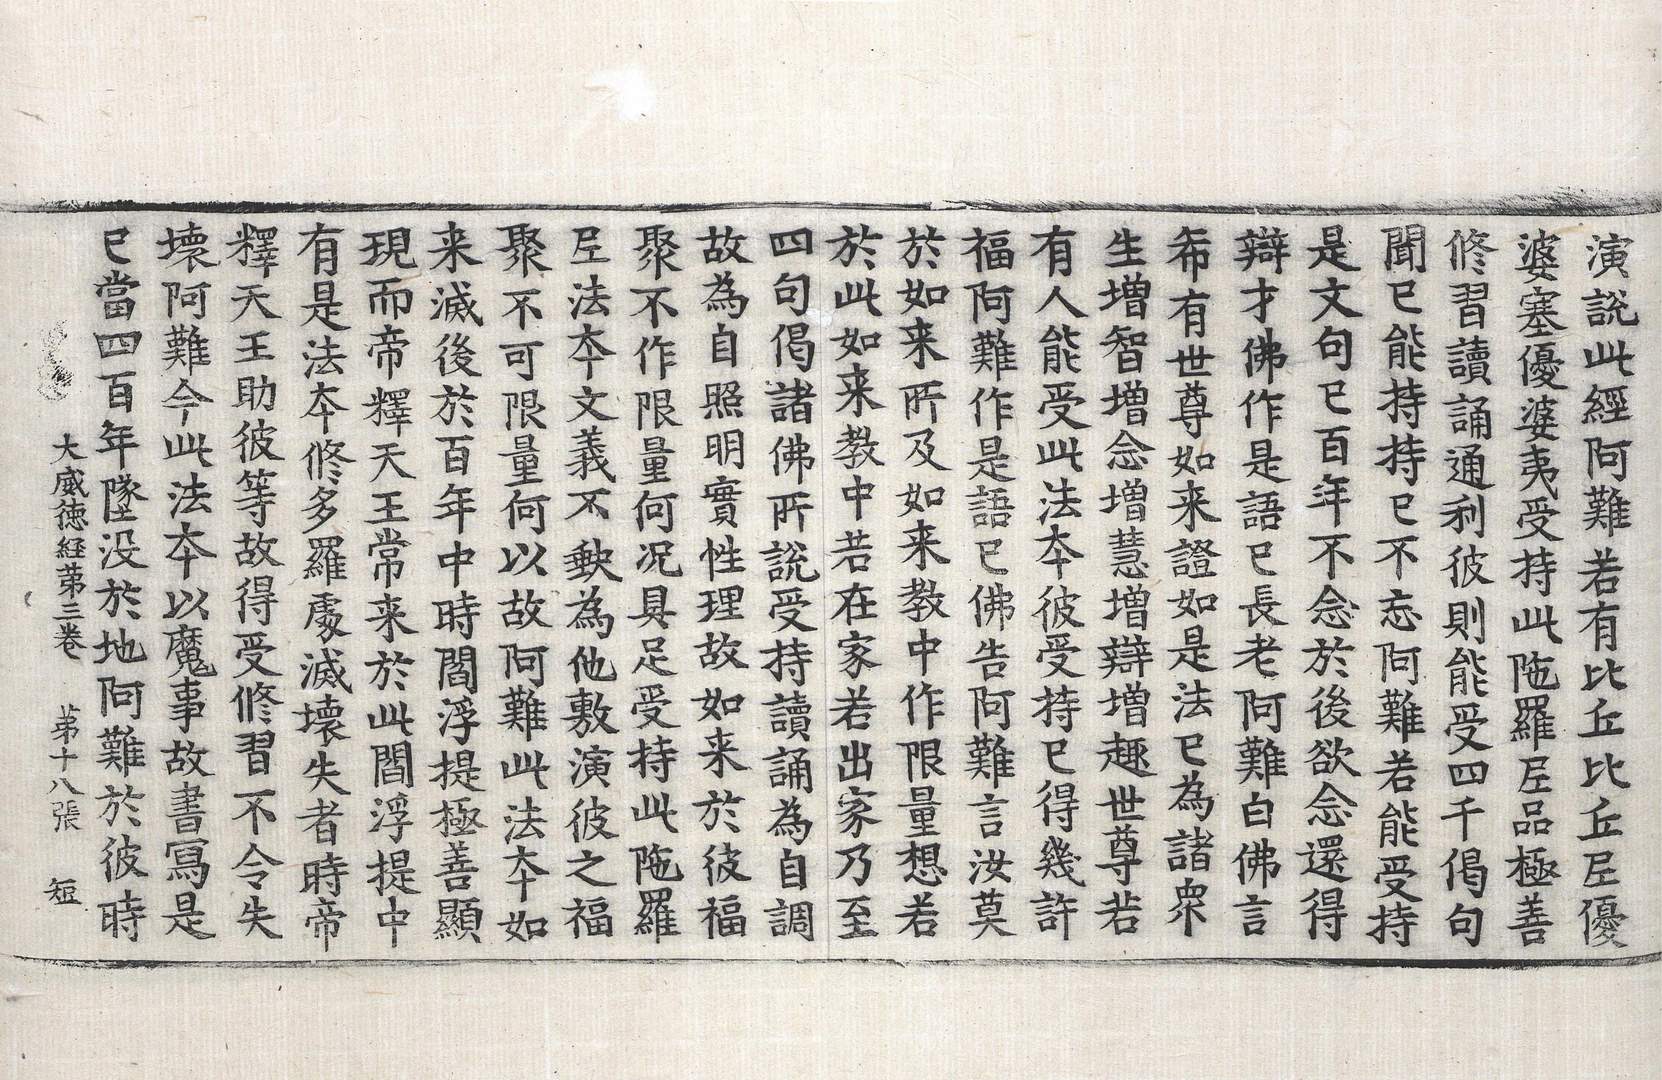 演說此經阿難若有比丘比丘尼優
婆塞優婆夷受持此陁羅尼品極善
修習讀誦通利彼則能受四千偈句
聞已能持持已不忘阿難若能受持
是文句已百年不念於後欲念還得
辯才佛作是語已長老阿難白佛言
希有世尊如来證如是法已為諸衆
生增智增念增慧增辯增趣世尊若
有人能受此法本彼受持已得幾許
福阿難作是語已佛告阿難言汝莫
於如来所及如来教中作限量想若
於此如来教中若在家若出家乃至
四句偈諸佛所說受持讀誦為自調
故為自照明實性理故如来於彼福
聚不作限量何况具足受持此陁羅
尼法本文義不缺為他敷演彼之福
聚不可限量何以故阿難此法本如
来滅後於百年中時閻浮提極善顯
現而帝釋天王常来於此閻浮提中
有是法本修多羅處滅壞失者時帝
釋天王助彼等故得受修習不令失
壞阿難今此法本以魔事故書寫是
已當四百年墜没於地阿難於彼時
大威徳経苐三卷 苐十八張 短